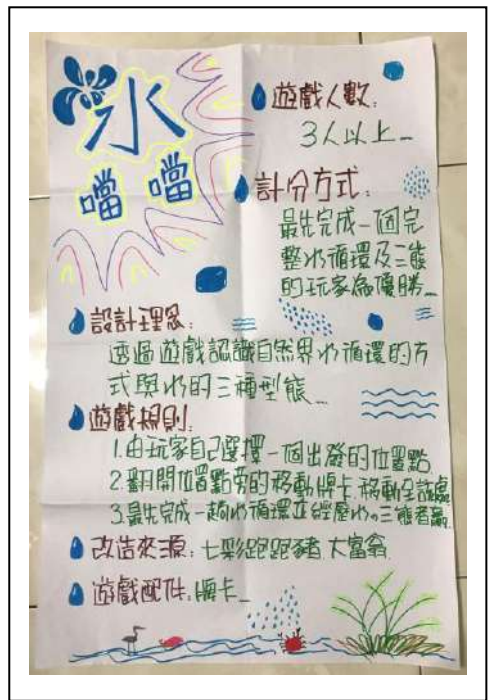 水
噹噹
遊戲人數:
3人以上
計分方式:
最先完成一個完
整水循環及三態
的玩家為優勝
設計理念:
透過遊戲認識自然界水循環的方
式與水的三種型態
遊戲規則:
1.由玩家自己選擇一個出發的位置點
2.翻開位置點旁的移動牌卡.移動至該處
3.最先完成一趟水循環並經歷水的三態者贏
改造來源:七彩跑跑豬 大富翁
遊戲配件:牌卡